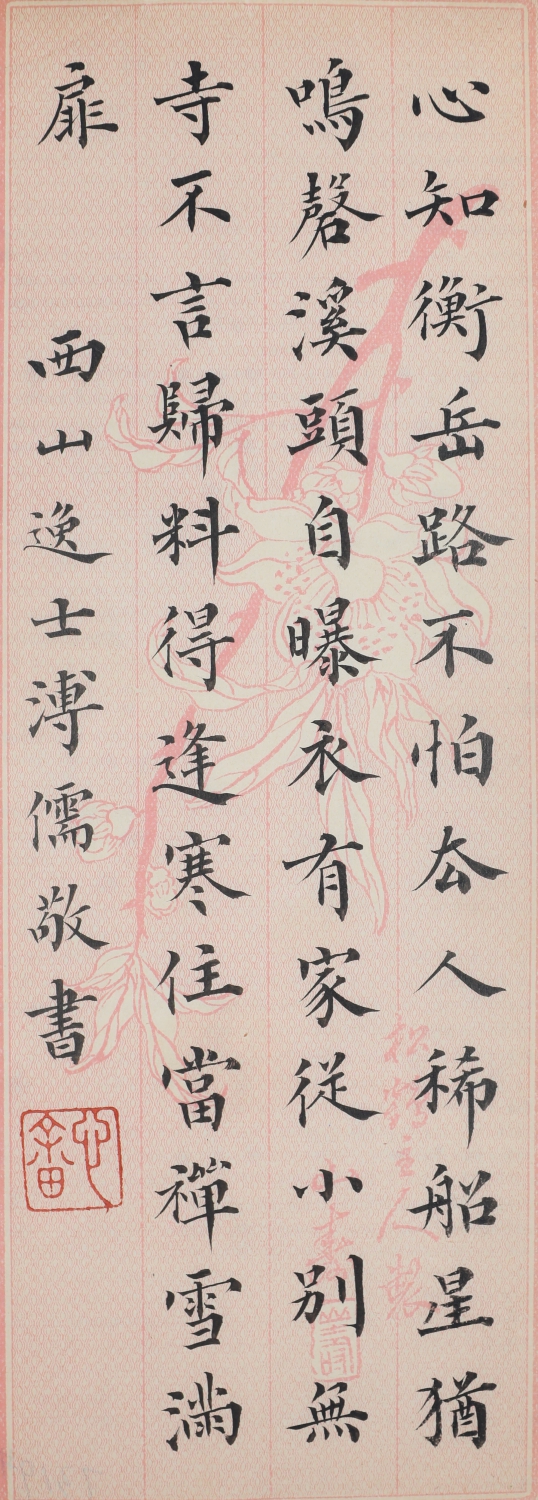 心知衡岳路不怕厺人稀船星猶
鳴磬溪頭自曝衣有家從小別無
寺不言歸料得逢寒住當禪雪滿
扉
西山逸士溥儒敬書
心畬